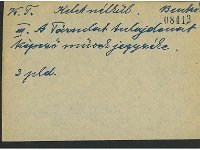 K. T. Kelet nélkül Benkő
08413
III. A Társulat tulajdonát
képező művek jegyzéke.
2 pld.